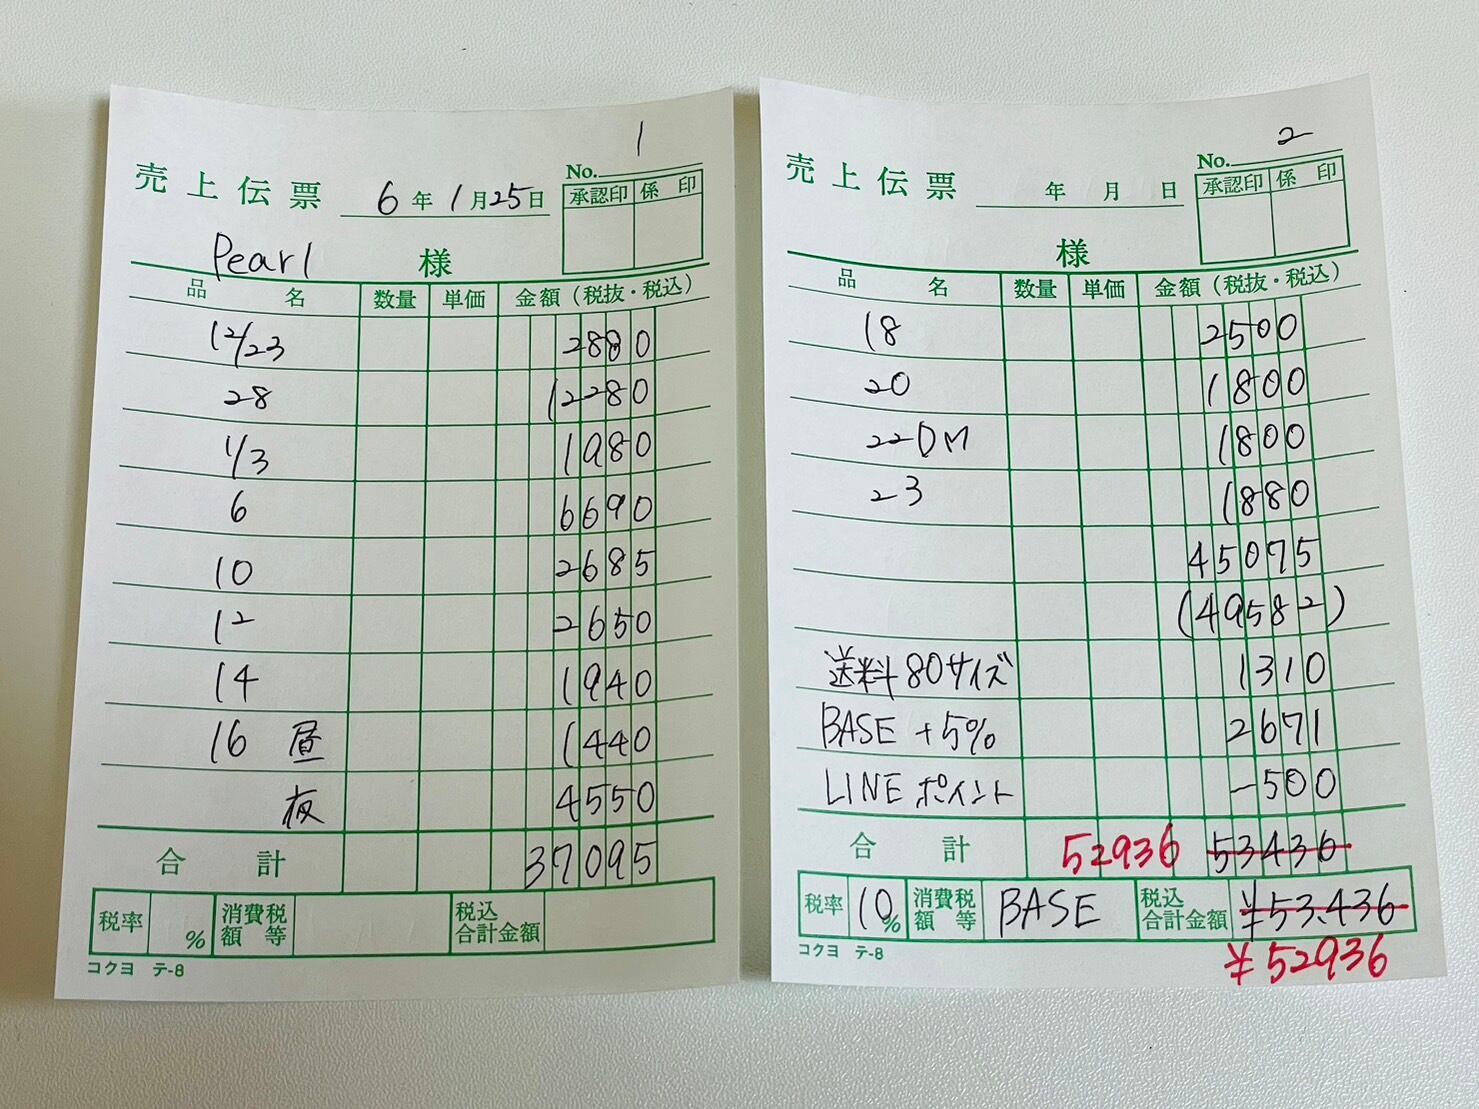 No. 1
売上伝票 6年1月25日
承認印 係印
Pearl 様
品名 数量 単価 金額(税抜・税込)
12/23 2880
28 12280
1/3 1980
6 6690
10 2685
12 2650
14 1940
16 昼 1440
夜 4550
合計 37095
税率 % 消費税額等 税込合計金額
コクヨ テ-8
No. 2
売上伝票 年 月 日
承認印 係印
様
品名 数量 単価 金額(税抜・税込)
18 2500
20 1800
22DM 1800
23 1880
45075
(49582)
送料80サイズ 1310
BASE +5% 2671
LINEポイント -500
合計 52936 53436
税率 10% 消費税額等 BASE 税込合計金額 ¥53.436
¥52936
コクヨ テ-8